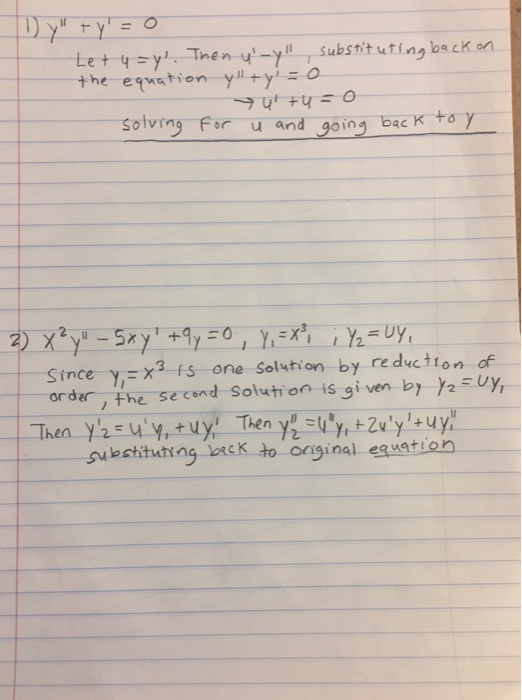 1) y" + y' = 0
Let u = y'. Then u' - y", substituting back on
the equation y" + y' = 0
→ u' + u = 0
solving for u and going back to y
2) x²y" - 5xy' + 9y = 0, y₁ = x³, ; y₂ = Uy₁
Since y₁ = x³ is one solution by reduction of
order, the second solution is given by y₂ = Uy₁
Then y'₂ = u'y₁ + uy₁' Then y₂" = u"y₁ + 2u'y' + uy₁"
substituting back to original equation